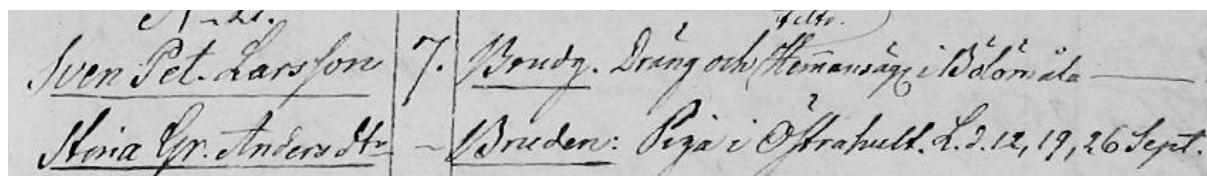 Sven Pet. Larsson 7. Brudg. Dräng och Hemansäg. i Bölömåla
Stina Gr. Andersdtr - Bruden: Piga i Östrahult. L. d. 12, 19, 26 Sept.